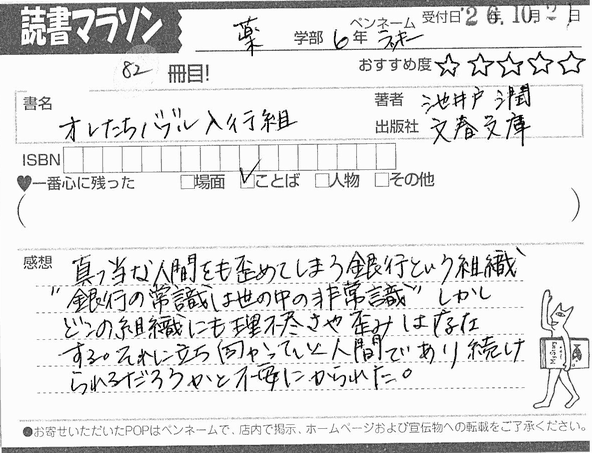 読書マラソン
薬 学部 6年 ペンネーム ラッキー 受付日 '26.10月21日
82 冊目!
おすすめ度 ☆☆☆☆☆
書名 オレたちバブル入行組
著者 池井戸潤
出版社 文春文庫
ISBN
♥一番心に残った □場面 ☑ことば □人物 □その他
( )
感想 真っ当な人間をも歪めてしまう銀行という組織
"銀行の常識は世の中の非常識" しかし
どこの組織にも理不尽さや歪みは存在
する。それに立ち向かっていく人間であり続け
られるだろうかと不安にかられた。
●お寄せいただいたPOPはペンネームで、店内で掲示、ホームページおよび宣伝物への転載をご了承ください。